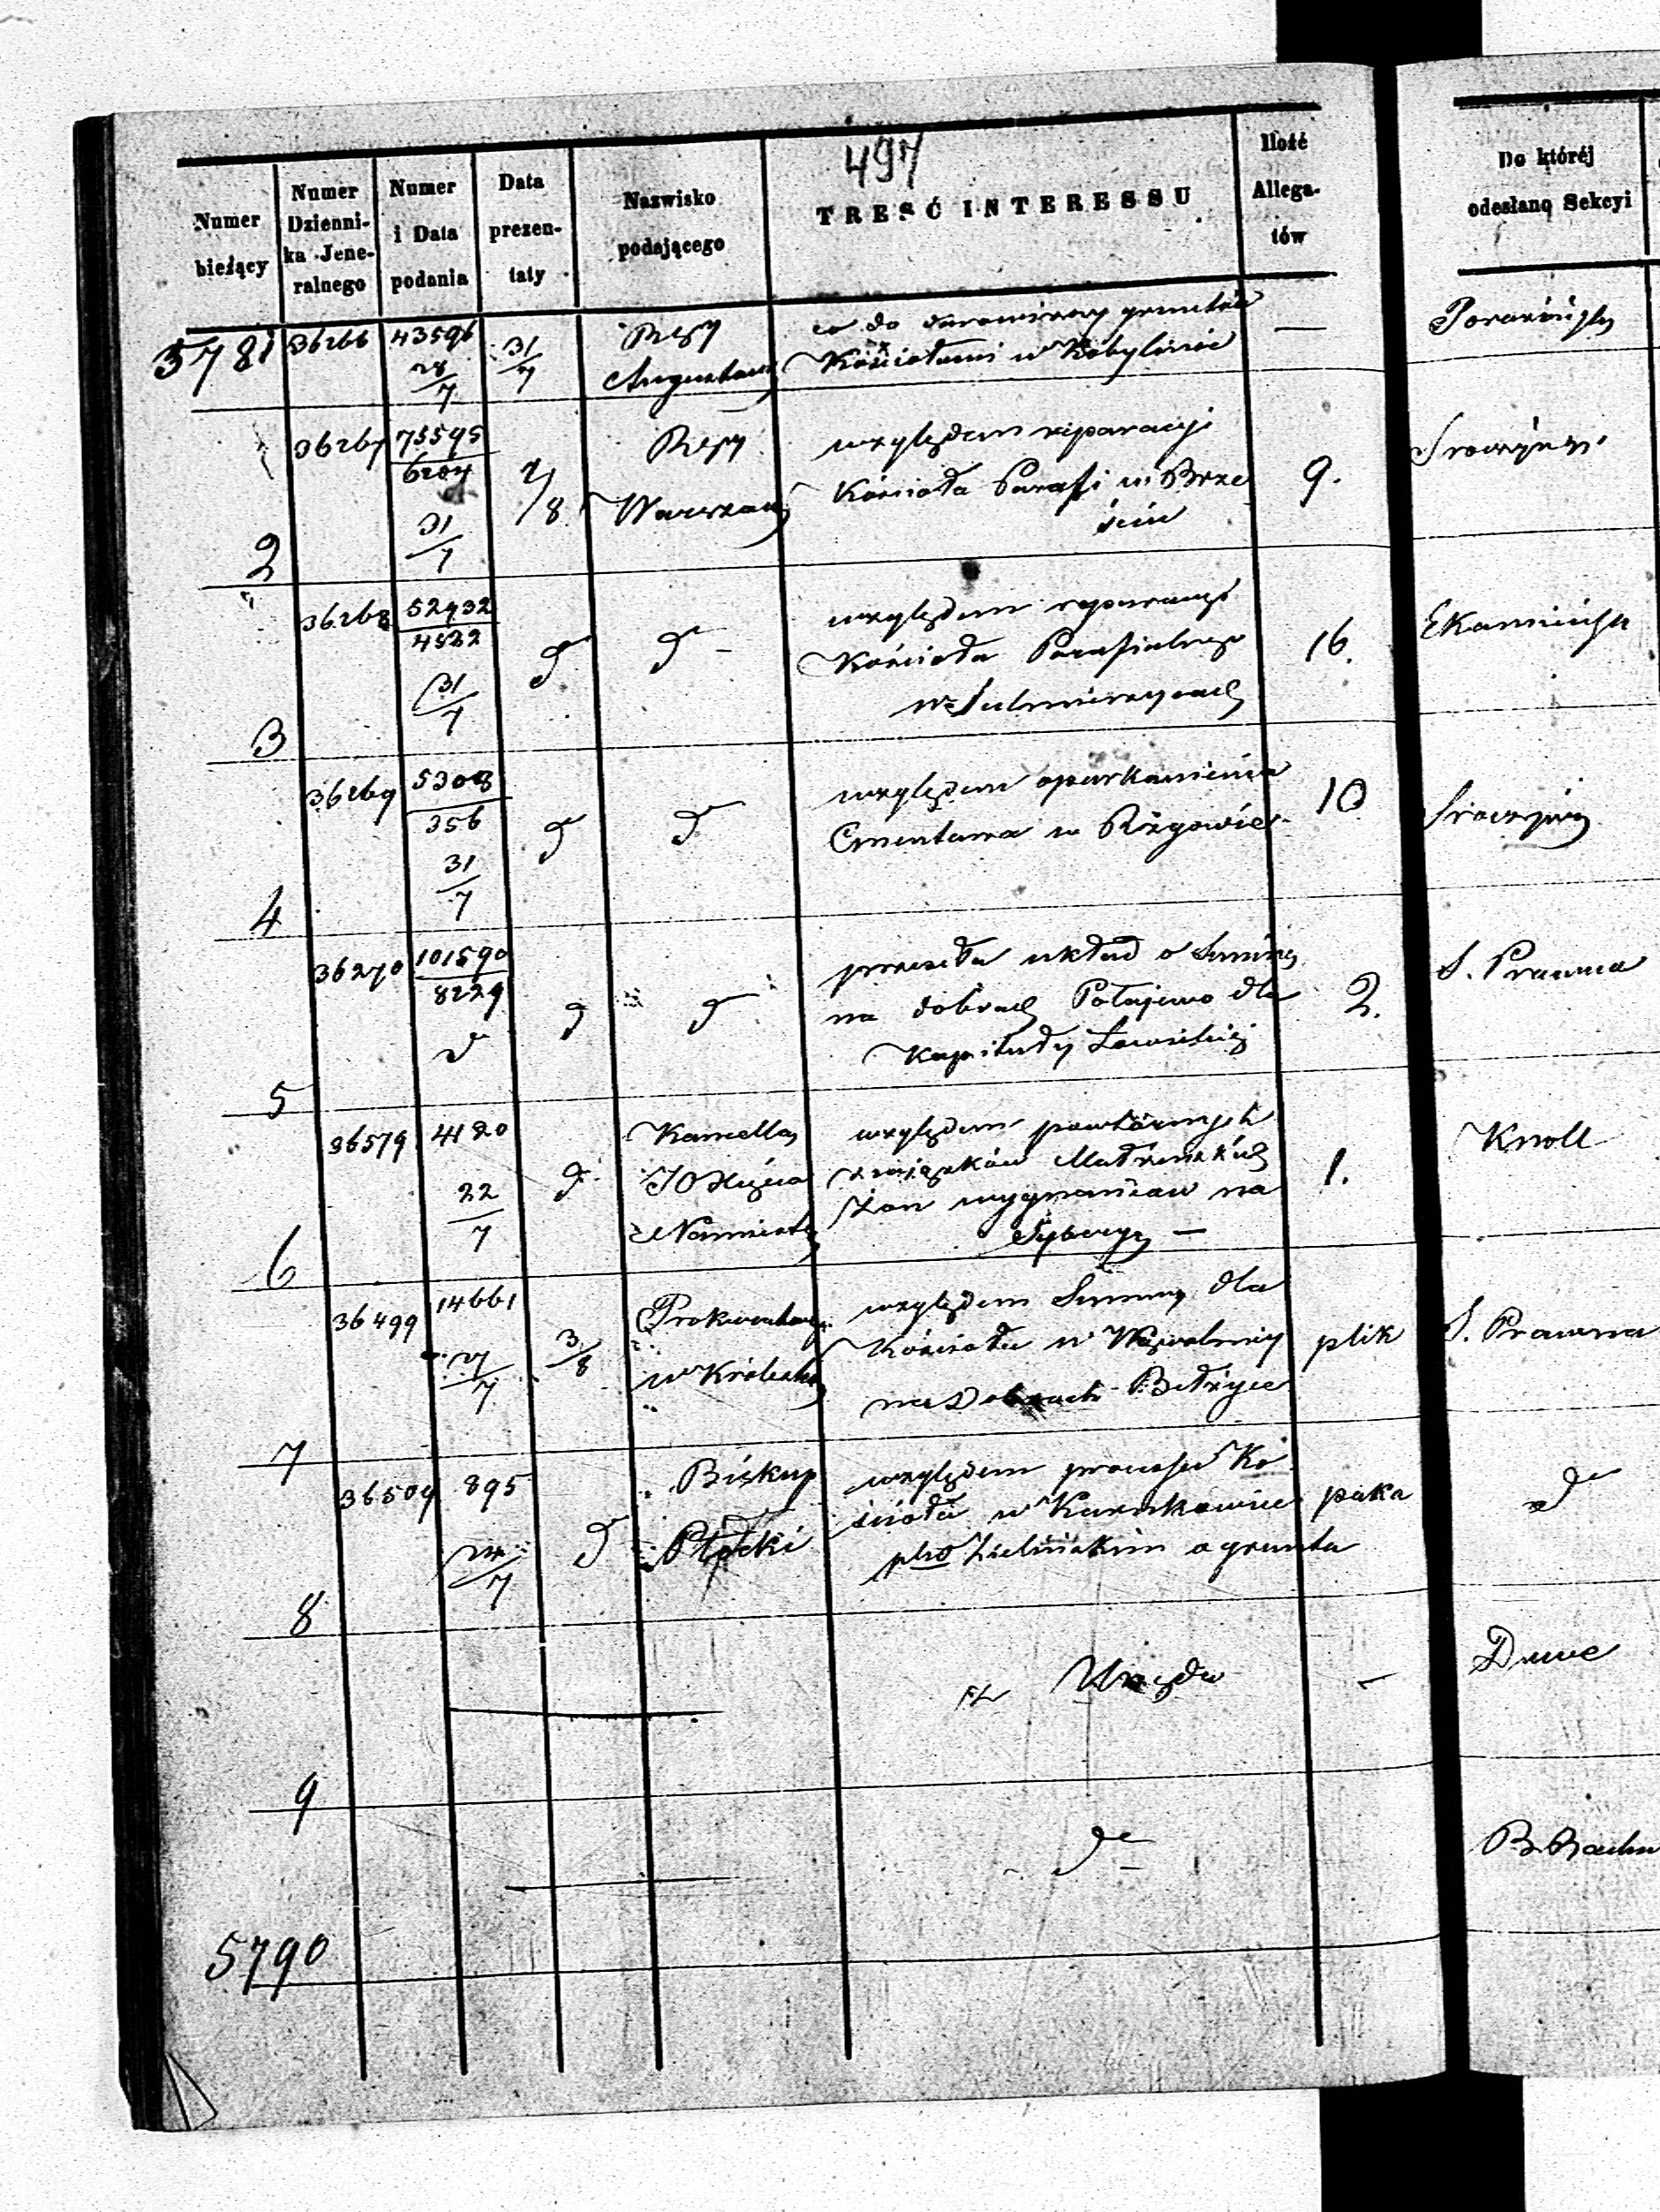 497
Numer bieżący
Numer Dzienni- ka Jene- ralnego
Numer i Data podania
Data prezen- taty
Nazwisko podającego
TREŚĆ INTERESSU
Ilość Allega- tów
Do któréj odesłano Sekcyi
5781 36266 43596 28/7 31/7
Rząd
co do gruntów
Kościołami w Kobylinie
—
2 36267 75595
6204
31/7 2/8
Rząd
Warszaws
względem reparacyi
Kościoła Parafi w Brze
ściu
9.
3 36268 52932
4522
31/7 d d -
względem reparacyi
Kościoła Parafialnego
w Sulmierzycach
16.
4 36269 5308
356
31/7 d d
względem oparkanienia
Cmentarza w Rzgowie
10
5 36270 101590
8229
d d d
przesyła układ o Summę
na dobrach Połajewo dla
Kapituły Łowickiej
2.
S. Prawna
6 36579 4120
22/7 d
JO Xięcia
Namiestn
względem powtórnych
związków Małżeńskich
Żon wygnańców na
Syberyę —
1.
Knoll
7 36499 14661
27/7 3/8
Prokurator
w Królestw
względem Summy dla
Kościoła w Wąwolnicy
na Dobrach Bełżyce
plik
S. Prawna
8 36504 895
24/7 d
Biskup
Płocki
względem processu Ko
ścioła w Karnkowie
pko Zielińskim o grunta
paka
d
9
z Urzędu
—
5790
d -